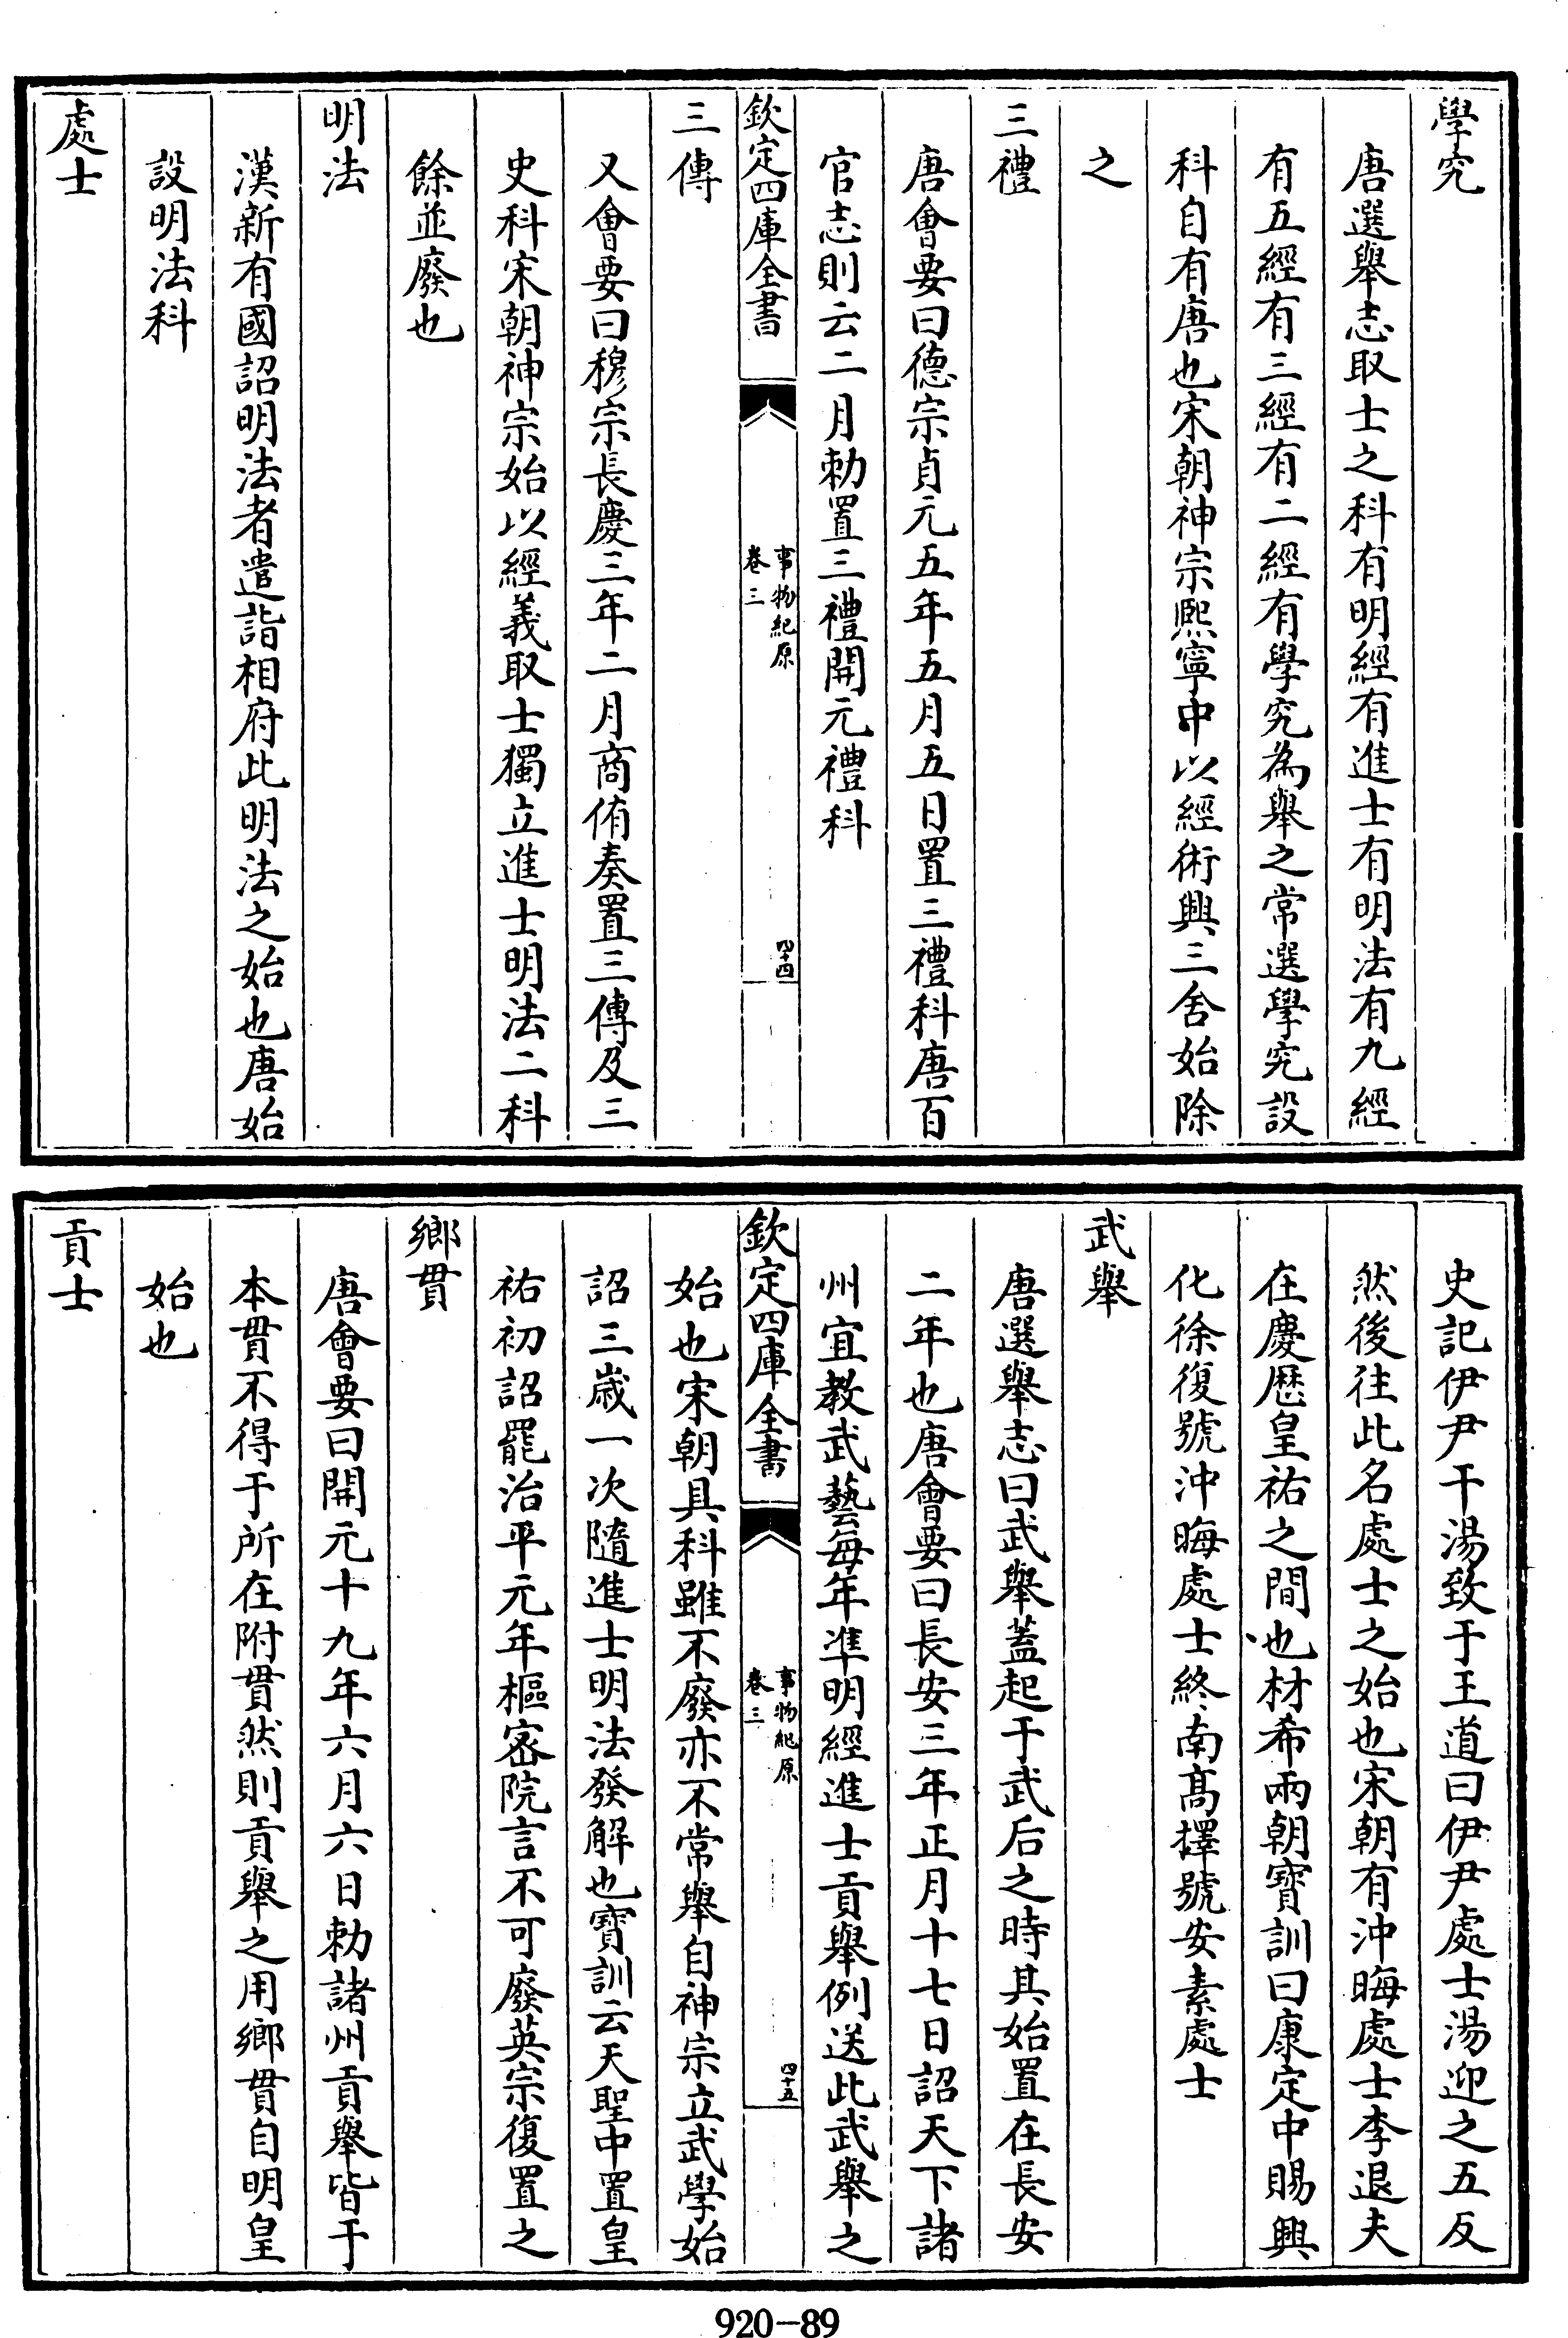 學究
唐選舉志取士之科有明經有進士有明法有九經
有五經有三經有二經有學究為舉之常選學究設
科自有唐也宋朝神宗熙寧中以經術興三舍始除
之
三禮
唐會要曰德宗貞元五年五月五日置三禮科唐百
官志則云二月勅置三禮開元禮科
欽定四庫全書
事物紀原
卷三
四十四
三傳
又會要曰穆宗長慶三年二月商侑奏置三傳及三
史科宋朝神宗始以經義取士獨立進士明法二科
餘並廢也
明法
漢新有國詔明法者遣詣相府此明法之始也唐始
設明法科
處士
史記伊尹干湯致于王道曰伊尹處士湯迎之五反
然後往此名處士之始也宋朝有沖晦處士李退夫
在慶歷皇祐之間也材希兩朝寶訓曰康定中賜興
化徐復號沖晦處士終南髙擇號安素處士
武舉
唐選舉志曰武舉蓋起于武后之時其始置在長安
二年也唐會要曰長安三年正月十七日詔天下諸
州宜教武藝每年準明經進士貢舉例送此武舉之
欽定四庫全書
事物紀原
卷三
四十五
始也宋朝具科雖不廢亦不常舉自神宗立武學始
詔三歲一次隨進士明法發解也寶訓云天聖中置皇
祐初詔罷治平元年樞宻院言不可廢英宗復置之
鄉貫
唐會要曰開元十九年六月六日勅諸州貢舉皆于
本貫不得于所在附貫然則貢舉之用鄉貫自明皇
始也
貢士
920-89